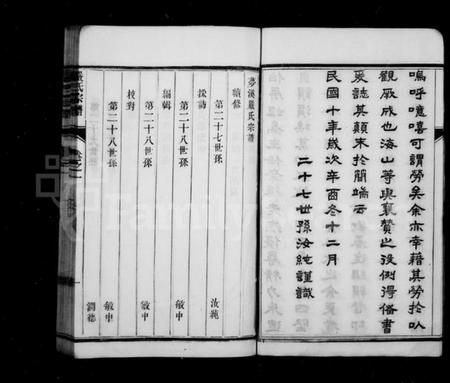 嗚呼噫嘻可謂勞矣余亦幸藉其勞於以
觀厥成也海山等與襄贊之役例得備書
爰誌其顛末於簡端云
民國十年歲次辛酉冬十二月
二十七世孫汝純謹識
夢溪嚴氏宗譜
續修
第二十七世孫 汝純
採訪
第二十八世孫 敏中
編輯
第二十八世孫 敏中
校對
第二十八世孫 潤德
嚴氏宗譜